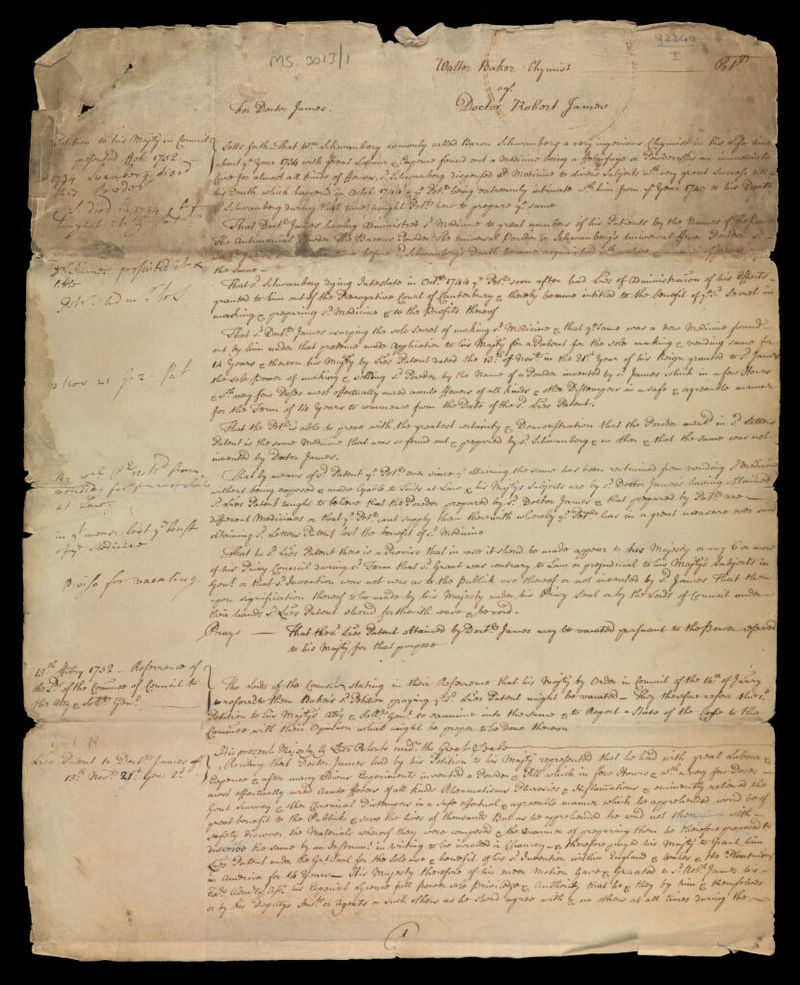 MS. 3013/1
42240
Walter Baker Chymist
agt
Doctor Robert James
Petr
For Doctor James.
Petition to his Majty in Council
presented Feb. 1752
1734 Swanberg
his Powder
died in 1744
taught
Setts forth That Wm Schwanberg comonly called Baron Schwanberg a very ingenious Chymist in his Life time
about ye Year 1734 with great Labour & Expence found out a Medicine being a Febrifuge or Powder as an immediate
Cure for almost all kinds of Fevers. Sd Schwanberg dispensed sd Medicine to divers Subjects wth very great Success till
his Death which happend in Octob. 1744 & ye Petr being extreamly intimate wth him from ye Year 1740 to his Death
sd Schwanberg during that time taught Petr how to prepare ye same
That Doctr James having Administred sd Medicine to great numbers of his Patients by the Names of
The Antimonial Powder The Barons Powder The universal Powder & Schwanberg's universal Fever Powder
before sd Schwanberg's Death became acquainted
the same
That sd Schwanberg dying Intestate in Octr 1744 ye Petr soon after had Lres of Administration of his Effects
granted to him out of the Prerogative Court of Canterbury & thereby became intitled to the benefit of ye sd Secret in
making & preparing sd Medicine & to the Profits thereof
That sd Doctr James usurping the sole Secret of making sd Medicine & that ye same was a new Medicine found
out by him under that pretence made Application to his Majty for a Patent for the sole making & vending same for
14 Years & thereon his Majty by Lres Patent dated the 13th of Novr in the 21st Year of his Reign granted to sd James
the sole Power of making & selling sd Powder by the Name of a Powder invented by sd James which in a few Hours
& wth very few Doses most effectually cured acute Fevers of all kinds & other Distempers in a safe & agreeable manner
for the Term of 14 Years to commence from the Date of the sd Lres Patent.
That the Petr is able to prove with the greatest certainty & Demonstration that the Powder mentd in sd Letters
Patent is the same Medicine that was so found out & prepared by sd Schwanberg & no other & that the same was not
invented by Doctor James.
That by means of sd Patent ye Petr ever since ye obtaining the same has been restrained from vending sd Medicine
without being exposed & made lyable to Suits at Law & his Majtys Subjects are by sd Doctor James's having obtained
sd Lres Patent taught to believe that the Powder prepared by sd Doctor James & that prepared by Petr are
different Medicines or that ye Petr cant supply them therewith whereby ye Petr has in a great measure ever since
obtaining sd Letters Patent lost the benefit of sd Medicine
at Law
in gt measure lost ye benefit
of ye Medicine
Proviso for vacating
That in sd Lres Patent there is a Proviso that in case it shod be made appear to his Majesty or any 6 or more
of his Privy Council during sd Term that sd Grant was contrary to Law or prejudicial to his Majtys Subjects in
Genl or that sd Invention was not new as to the Publick use thereof or not invented by sd James That then
upon signification thereof to be made by his Majesty under his Privy Seal or by the Lords of Council under
their hands sd Lres Patent should forthwith cease & be void.
Prays — That the sd Lres Patent obtained by Doctr James may be vacated pursuant to the Power reserved
to his Majty for that purpose
13th 1752 — Referrence of
the Lds of the Comittee of Council to
the Atty & Sollr Genl
The Lords of the Council stating in their Referrence that his Majty by Order in Council of the 14th of
referred to them Baker's sd Petition praying ye sd Lres Patent might be vacated — They therefore refer the sd
Petition to his Majtys Atty & Sollr Genl to examine into the same & to Report a State of the Case to the
Comittee with their Opinion what might be proper to be done therein
Lres Patent to Doctr James of
13th Novr 21st Geo: 2d
His present Majesty by Lres Patents undr the Great Seal
Reciting that Doctor James had by his Petition to his Majty represented that he had with great Labour &
Expence & after many tedious Experiments invented a Powder & Pill which in few Hours & wth a very few Doses
most effectually cured Acute Fevers of all kinds Rheumatisms Pleurisies & Inflamations & eminently relieved the
Gout Scurvy & other Chronical Distempers in a safe effectual & agreeable manner which he apprehended would be of
great benefit to the Publick & save the lives of thousands But as he apprehended he could not with
safety discover the Materials whereof they were composed & the manner of preparing them he therefore proposed to
discover the same by an Instrumt in writing to be inrolled in Chancery & therefore prayed his Majty to Grant him
Lres Patent under the Gt Seal for the sole use & benefit of his sd Invention within England & Wales & the Plantations
in America for 14 Years — His Majesty therefore of his meer Motion Gave & Granted to sd Robt James his
Exrs Admrs & Assns his Especial Lycence full power sole Priviledge & Authority that he & they by him & themselves
or by his Deputys Servts or Agents or such others as he should agree with & no others at all times during the
1